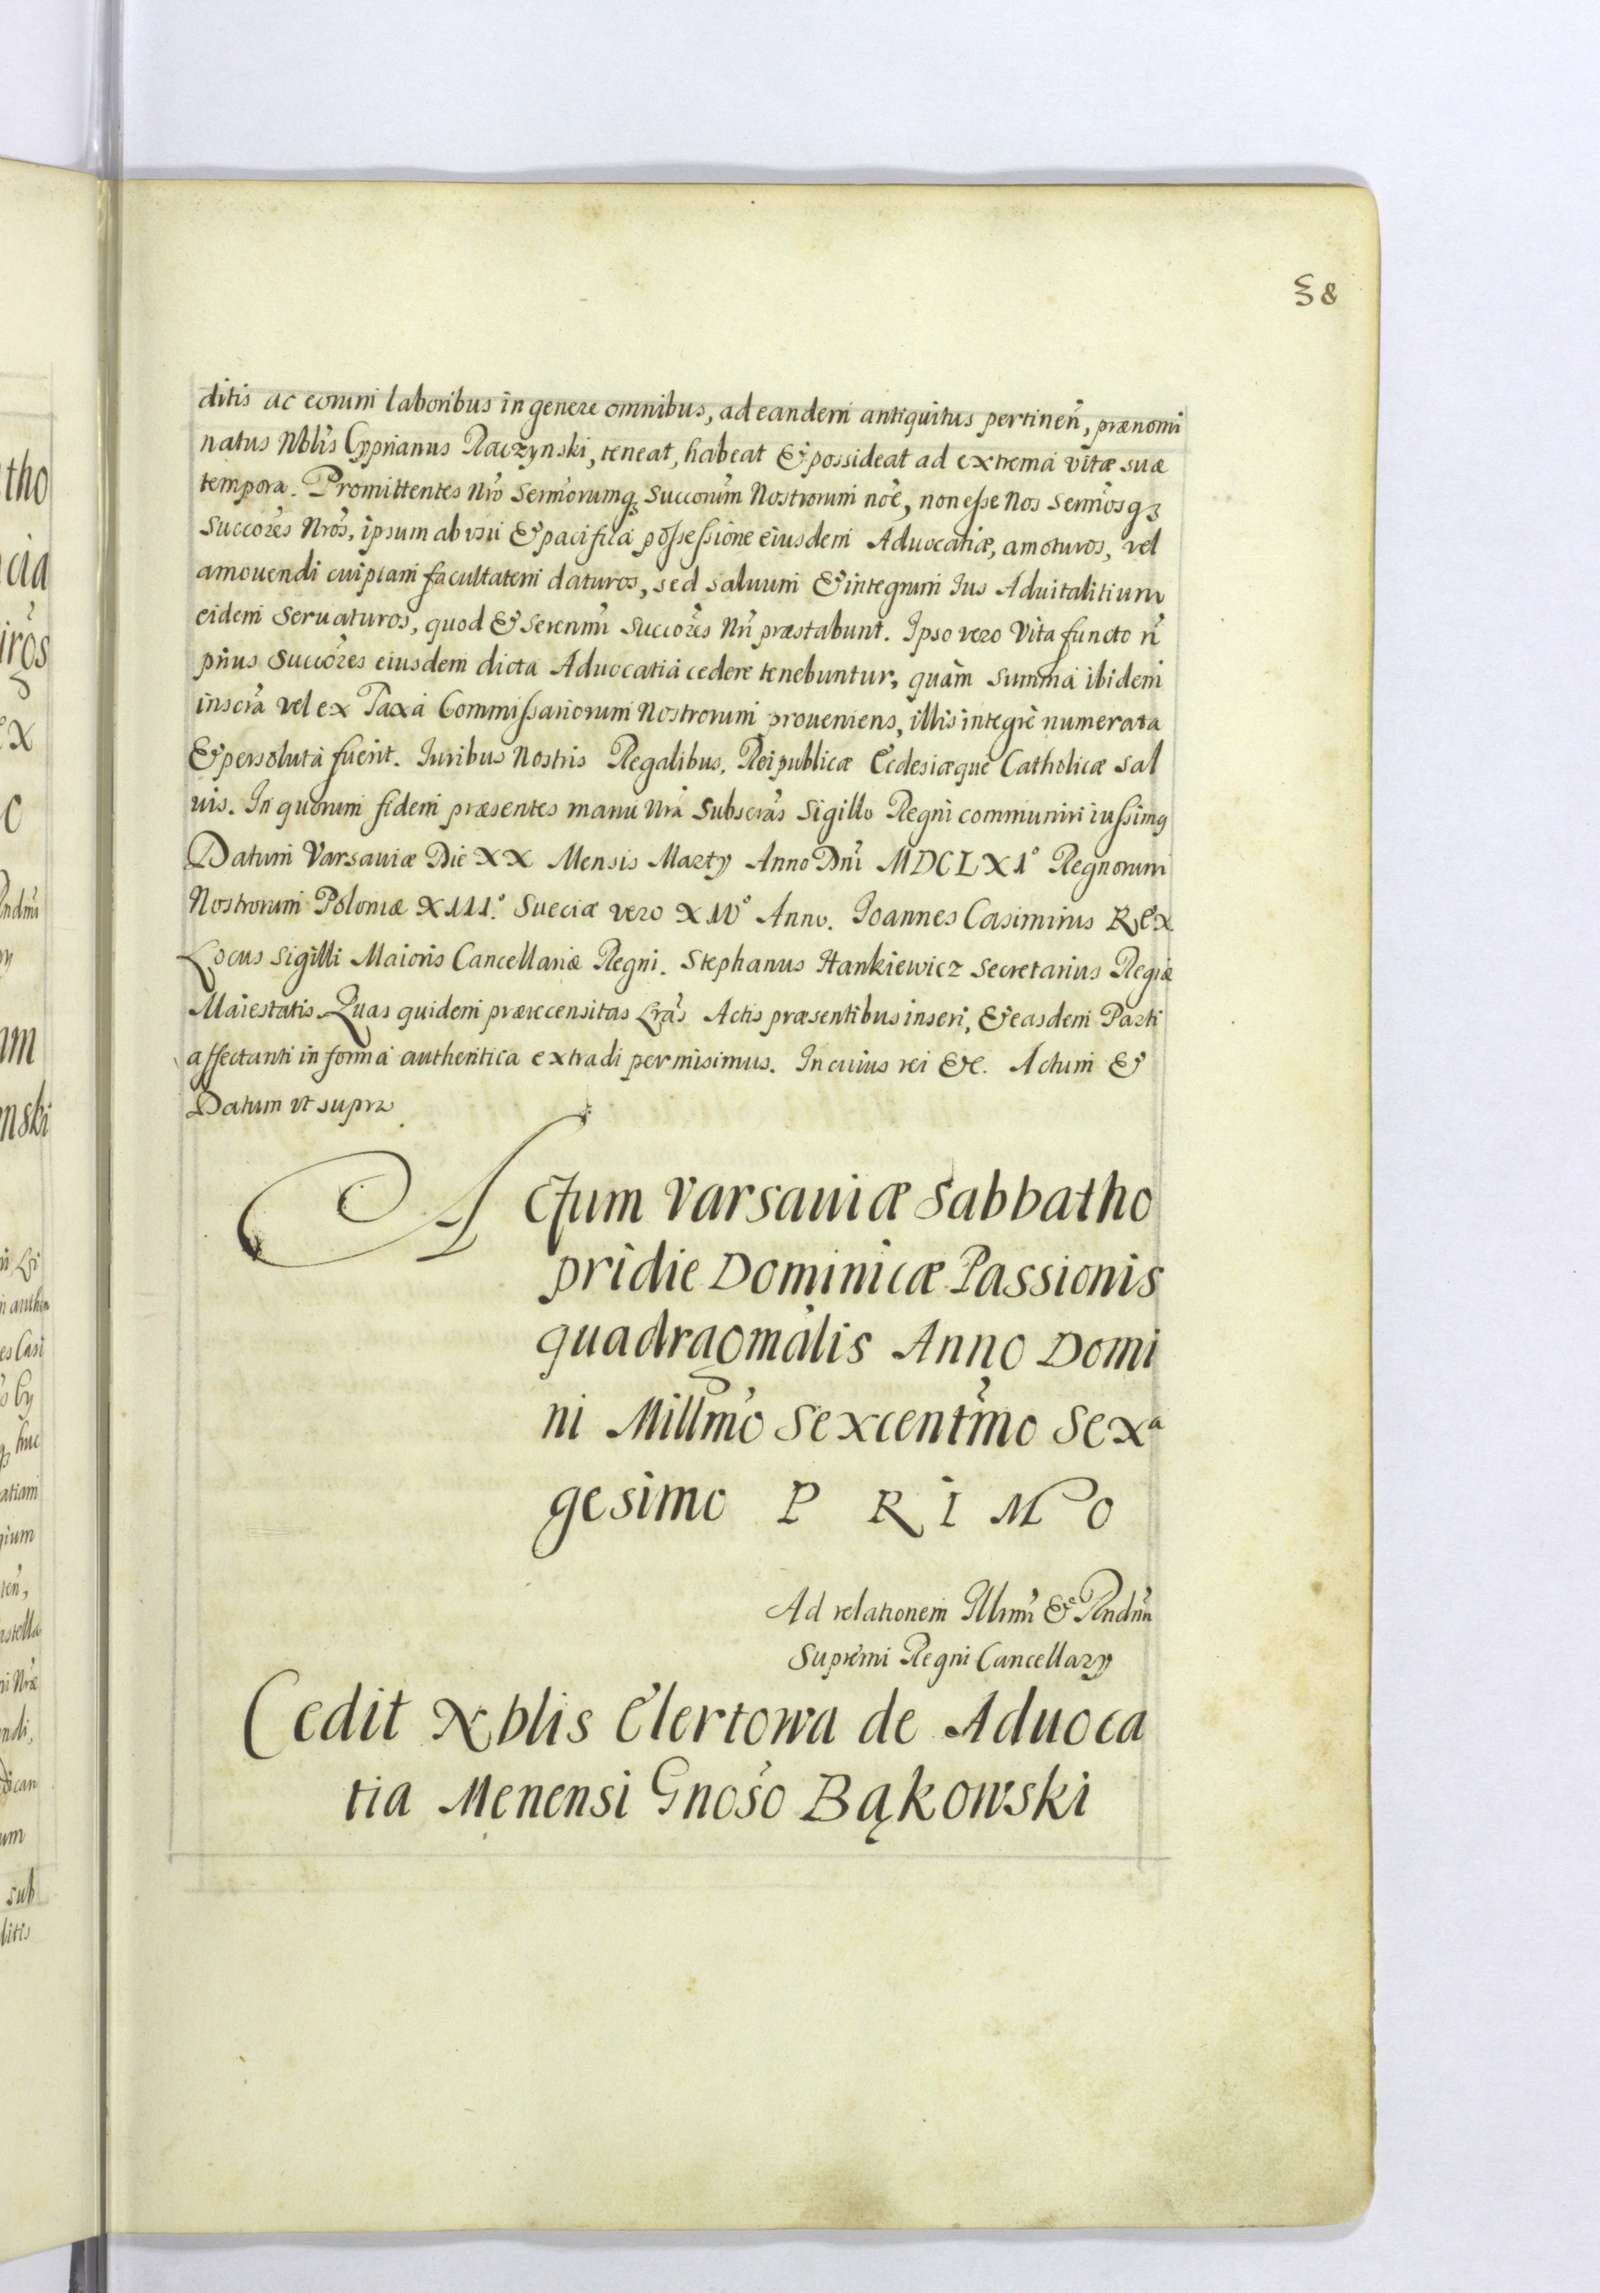 38
ditis ac eorum laboribus in genere omnibus, ad eandem antiquitus pertineñ, prænomi
natus Nblis Cyprianus Raczynski, teneat, habeat & possideat ad extrema vitæ suæ
tempora. Promittentes Nro Sermorumq succorum Nostrorum noe, non esse Nos Sermosq
Succores Nros, ipsum ab usu & pacifica possessione eiusdem Aduocatiæ, amoturos, vel
amouendi cuipiam facultatem daturos, sed saluum & integrum Ius Aduitalitium
eidem seruaturos, quod & serenmi succores Nri præstabunt. Ipso vero vita functo ñ
pñus succores eiusdem dicta Aduocatia cedere tenebuntur, quàm summa ibidem
inscra vel ex Taxa Commissariorum Nostrorum proueniens, illis integrè numerata
& persoluta fuerit. Iuribus Nostris Regalibus, Reipublicæ Ecclesiæque Catholicæ sal
uis. In quorum fidem præsentes manu Nra Subscras Sigillo Regni communiri iussimq
Datum Varsauiæ Die XX Mensis Marty Anno Dni MDCLX1° Regnorum
Nostrorum Poloniæ X111.° Sueciæ vero X1V° Anno. Ioannes Casimirus REX
Locus Sigilli Maioris Cancellariæ Regni. Stephanus Hankiewicz Secretarius Regiæ
Maiestatis Quas quidem præcensitas Lras Actis præsentibus inseri, & easdem Parti
affectanti in forma authentica extradi permisimus. In cuius rei &c. Actum &
Datum ut supra.
Actum Varsauiæ Sabbatho
pridie Dominicæ Passionis
quadragmalis Anno Domi
ni Millmo Sexcentmo Sexa
gesimo PRIMO
Ad relationem Illrmi & Rndmi
Supremi Regni Cancellary
Cedit Nblis Elertowa de Aduoca
tia Menensi Gnoso Bąkowski